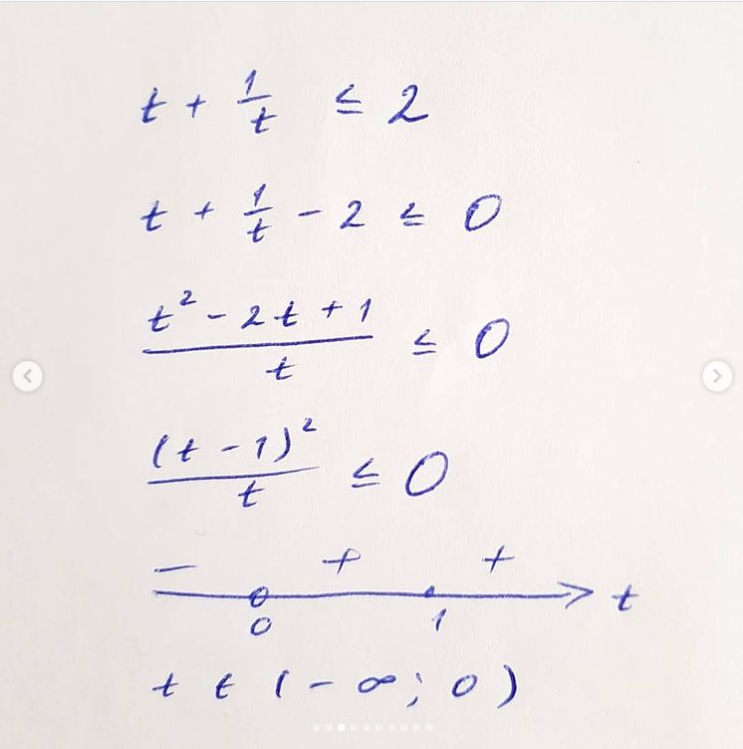 t + 1/t ≤ 2
t + 1/t - 2 ≤ 0
(t² - 2t + 1)/t ≤ 0
(t - 1)²/t ≤ 0
- + +
t
0 1
t ∈ (-∞; 0)